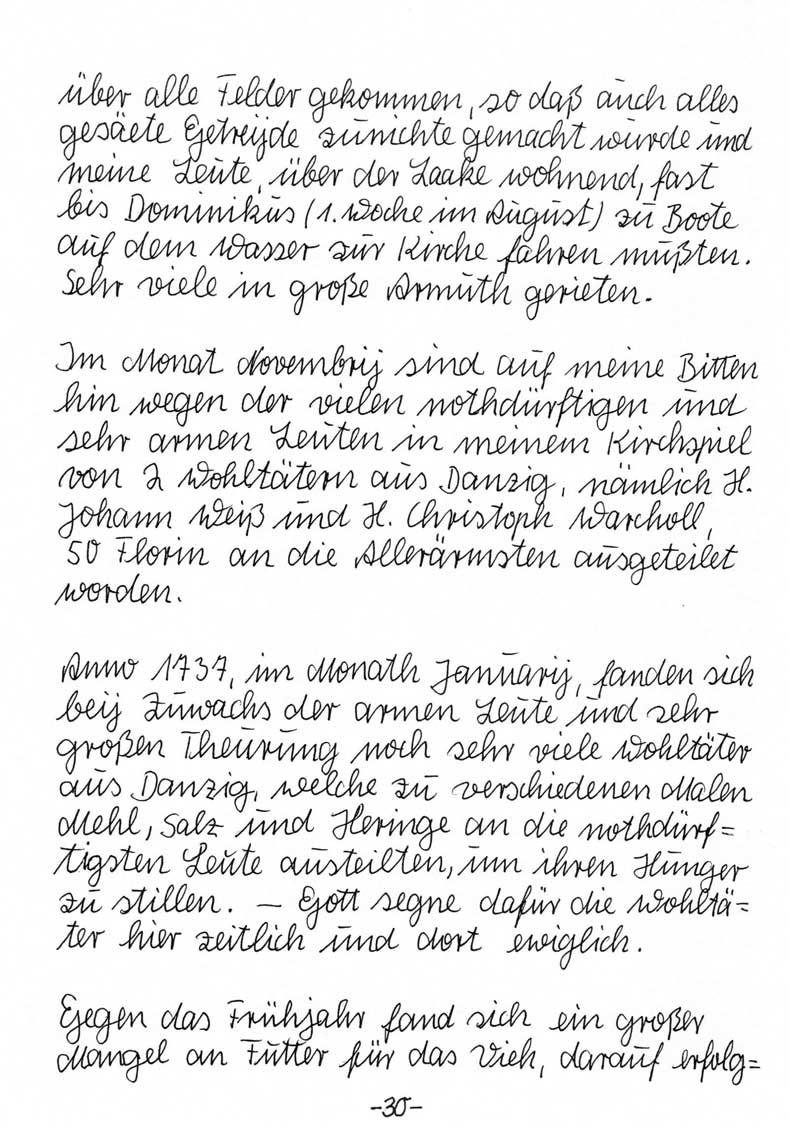 über alle Felder gekommen, so daß auch alles
gesäete Getreijde zunichte gemacht wurde und
meine Leute, über der Laake wohnend, fast
bis Dominikus (1. Woche im August) zu Boote
auf dem Wasser zur Kirche fahren mußten.
Sehr viele in große Armuth gerieten.
Im Monat Novembrij sind auf meine Bitten
hin wegen der vielen nothdürftigen und
sehr armen Leuten in meinem Kirchspiel
von 2 Wohltätern aus Danzig, nämlich H.
Johann Weiß und H. Christoph Warcholl,
50 Florin an die Allerärmsten ausgeteilet
worden.
Anno 1737, im Monath Januarij, fanden sich
beij Zuwachs der armen Leute und sehr
großen Theurung noch sehr viele Wohltäter
aus Danzig, welche zu verschiedenen Malen
Mehl, Salz und Heringe an die nothdürf=
tigsten Leute austeilten, um ihren Hunger
zu stillen. — Gott segne dafür die Wohltä=
ter hier zeitlich und dort ewiglich.
Gegen das Frühjahr fand sich ein großer
Mangel an Futter für das Vieh, darauf erfolg=
-30-